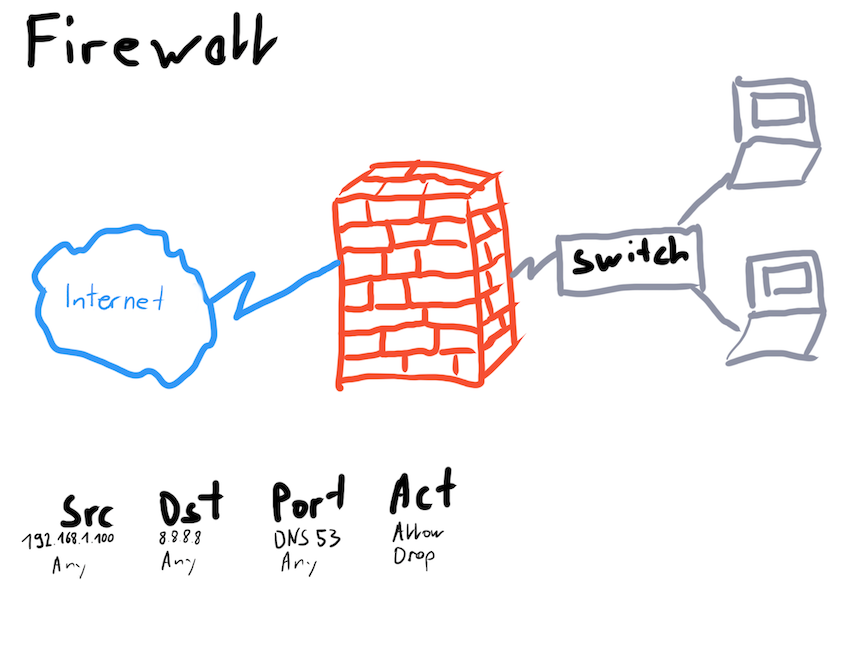 Firewall
Internet
Switch
Src Dst Port Act
192.168.1.100 8.8.8.8 DNS 53 Allow
Any Any Any Drop